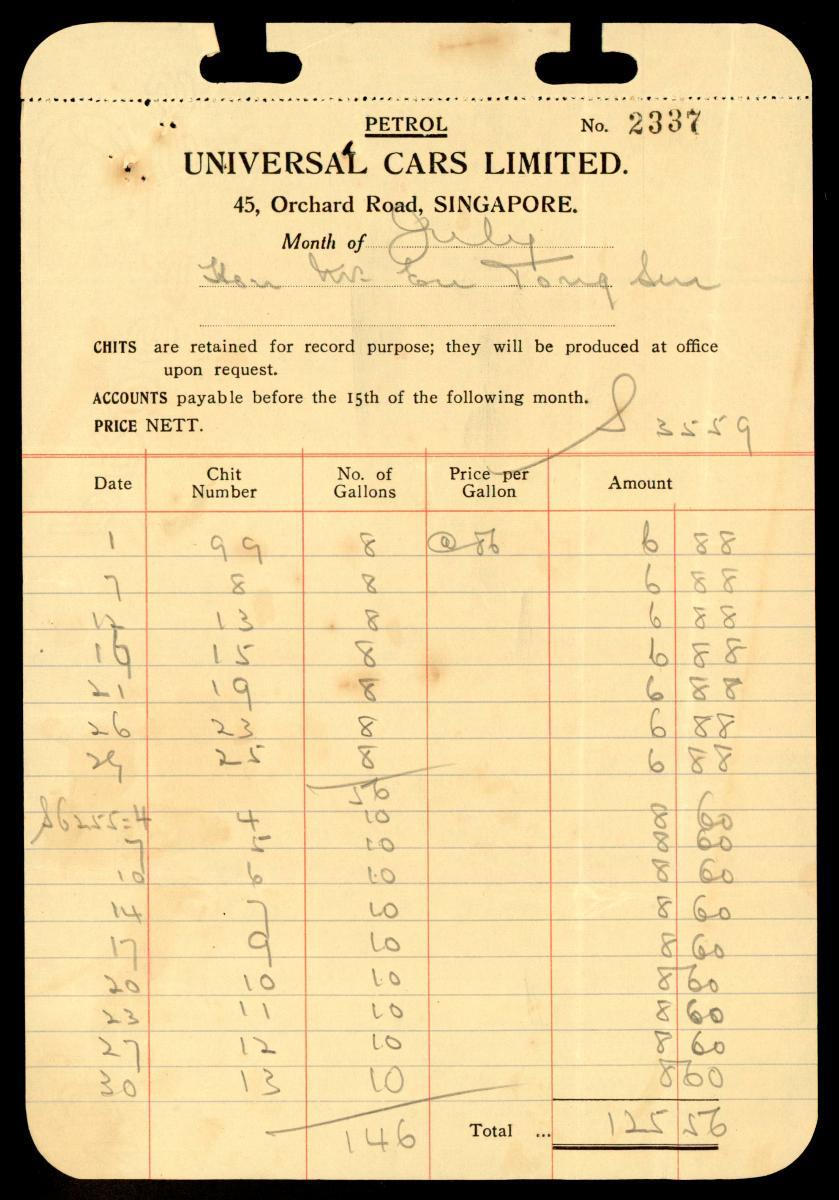 PETROL No. 2337
UNIVERSAL CARS LIMITED.
45, Orchard Road, SINGAPORE.
Month of July
Hon Mr. Eu Tong Sen
CHITS are retained for record purpose; they will be produced at office
upon request.
ACCOUNTS payable before the 15th of the following month.
PRICE NETT.
S 3559
Date Chit Number No. of Gallons Price per Gallon Amount
1 99 8 @ 86 6 88
7 8 8 6 88
12 13 8 6 88
19 15 8 6 88
21 19 8 6 88
26 23 8 6 88
29 25 8 6 88
56
S6255=4 4 10 8 60
7 5 10 8 60
10 6 10 8 60
14 7 10 8 60
17 9 10 8 60
20 10 10 8 60
23 11 10 8 60
27 12 10 8 60
30 13 10 8 60
146 Total ... 125 56